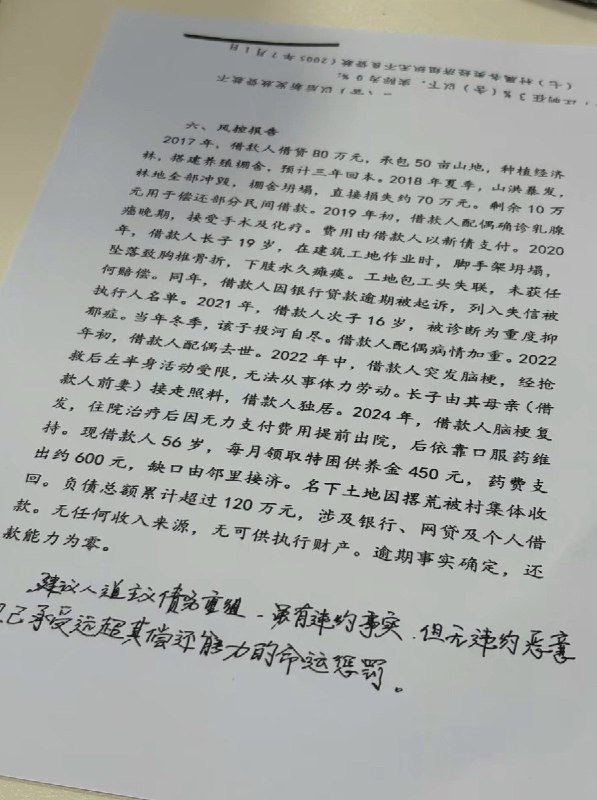 （七）村属各类经济组织无不良贷款（2005年7月1日
以后新发放贷款不
3%（含）以下，实际为0%。
六、风控报告
2017年，借款人借贷80万元，承包50亩山地，种植经济
林，搭建养殖棚舍，预计三年回本。2018年夏季，山洪暴发，
林地全部冲毁，棚舍坍塌，直接损失约70万元。剩余10万
元用于偿还部分民间借款。2019年初，借款人配偶确诊乳腺
癌晚期，接受手术及化疗。费用由借款人以新债支付。2020
年，借款人长子19岁，在建筑工地作业时，脚手架坍塌，
坠落致胸椎骨折，下肢永久瘫痪。工地包工头失联，未获任
何赔偿。同年，借款人因银行贷款逾期被起诉，列入失信被
执行人名单。2021年，借款人次子16岁，被诊断为重度抑
郁症。当年冬季，该子投河自尽。借款人配偶病情加重。2022
年初，借款人配偶去世。2022年中，借款人突发脑梗，经抢
救后左半身活动受限，无法从事体力劳动。长子由其母亲（借
款人前妻）接走照料，借款人独居。2024年，借款人脑梗复
发，住院治疗后因无力支付费用提前出院，后依靠口服药维
持。现借款人56岁，每月领取特困供养金450元，药费支
出约600元，缺口由邻里接济。名下土地因撂荒被村集体收
回。负债总额累计超过120万元，涉及银行、网贷及个人借
款。无任何收入来源，无可供执行财产。逾期事实确定，还
款能力为零。
建议人道主义债务重组，虽有违约事实，但无违约恶意
已承受远超其偿还能力的命运惩罚。